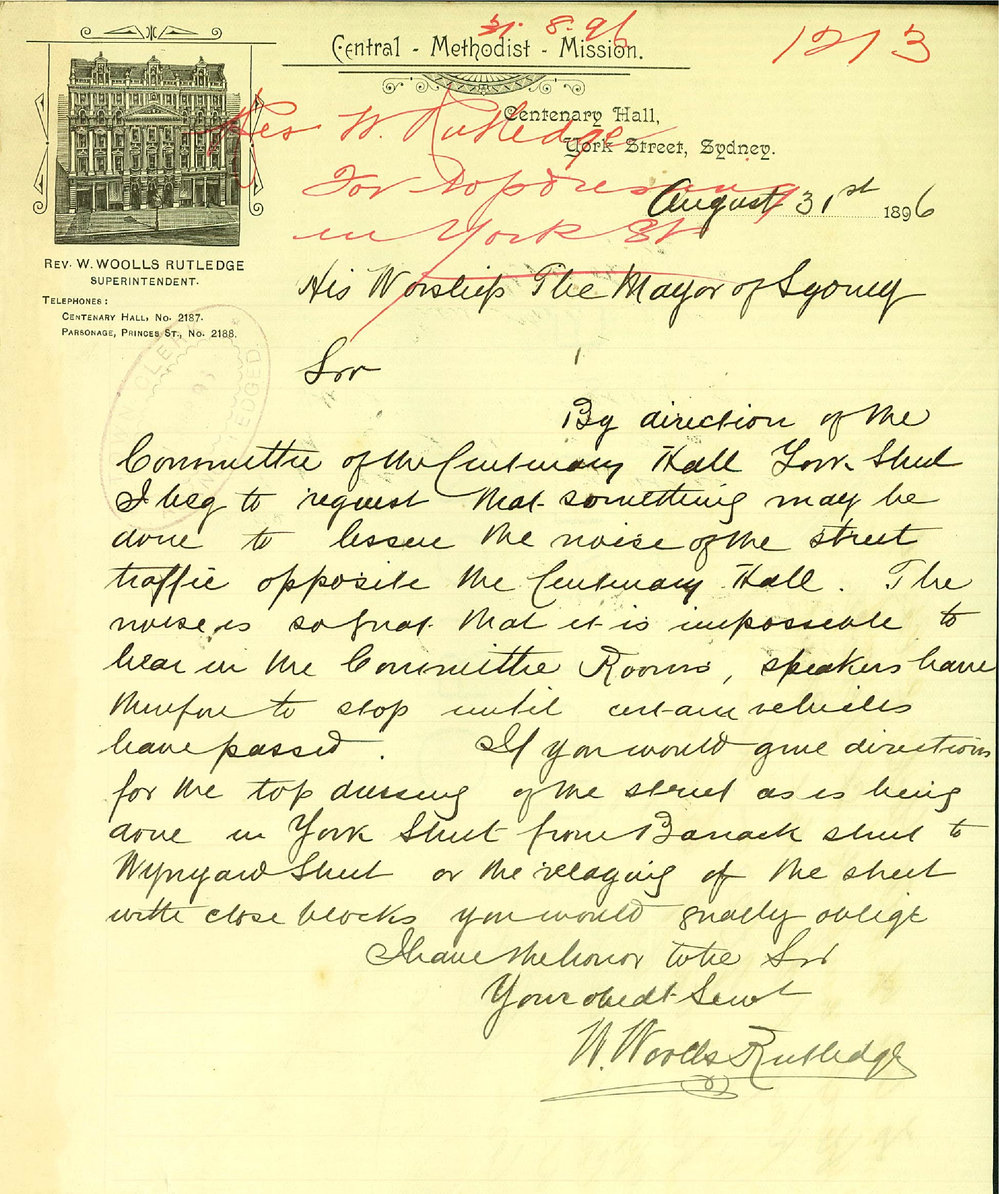 31.8.96
1213
Central - Methodist - Mission.
Centenary Hall,
York Street, Sydney.
Rev W. Rutledge
For topdressing
in York St
August 31st 1896
REV. W. WOOLLS RUTLEDGE
SUPERINTENDENT.
TELEPHONES:
CENTENARY HALL, No. 2187.
PARSONAGE, PRINCES ST., No. 2188.
His Worship The Mayor of Sydney
Sir
By direction of the
Committee of the Centenary Hall York Street
I beg to request that something may be
done to lessen the noise of the street
traffic opposite the Centenary Hall. The
noise is so great that it is impossible to
hear in the Committee Rooms, speakers have
therefore to stop until certain vehicles
have passed. If you would give directions
for the top dressing of the street as is being
done in York Street from Barrack street to
Wynyard Street or the relaying of the street
with close blocks you would greatly oblige
I have the honor to be Sir
Your obedt Servt
W. Woolls Rutledge